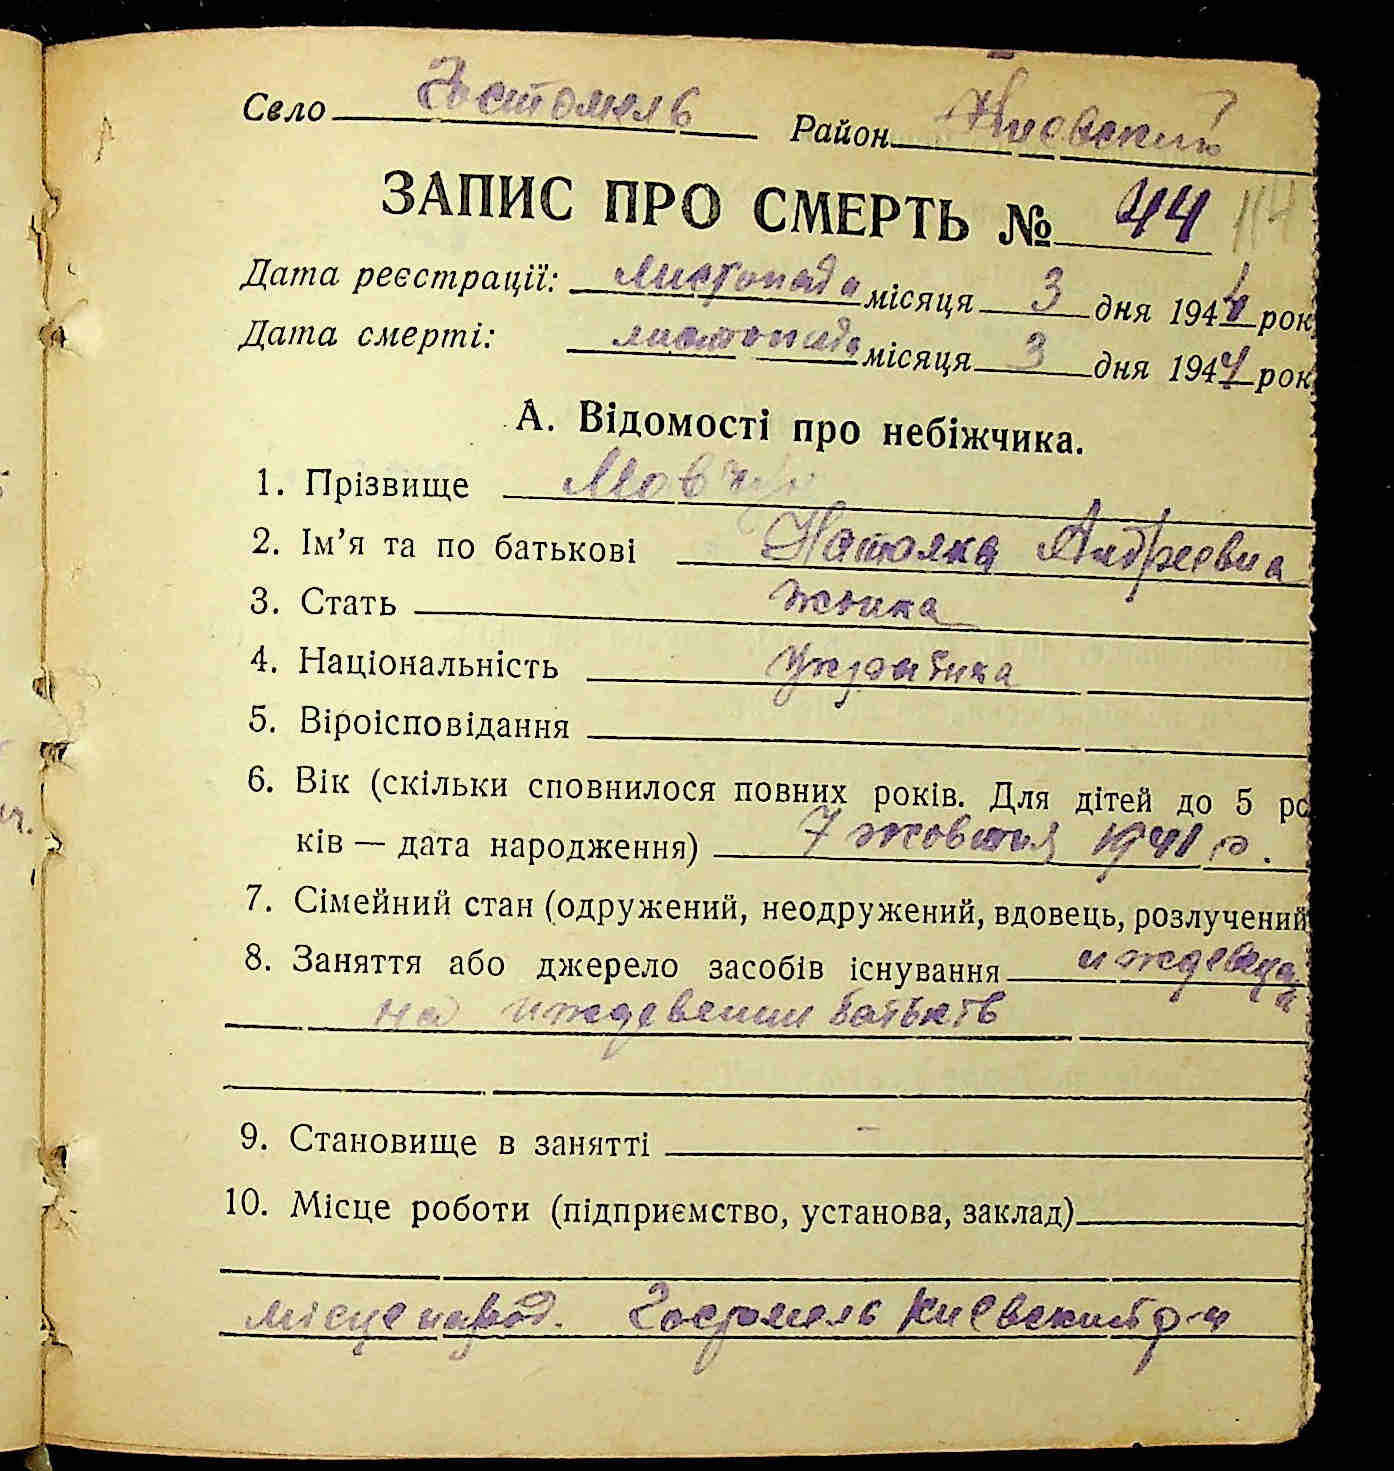 Село Гостомель Район Киевский
ЗАПИС ПРО СМЕРТЬ № 44 114
Дата реєстрації: листопада місяця 3 дня 1944 рок
Дата смерті: листопада місяця 3 дня 1941 рок
А. Відомості про небіжчика.
1. Прізвище
2. Ім’я та по батькові Наталка Андреевна
3. Стать жінка
4. Національність українка
5. Віросповідання
6. Вік (скільки сповнилося повних років. Для дітей до 5 ро
ків — дата народження) 7 жовтня 1941 р.
7. Сімейний стан (одружений, неодружений, вдовець, розлучений
8. Заняття або джерело засобів існування
на иждевении батьків
9. Становище в занятті —
10. Місце роботи (підприємство, установа, заклад)
місце народ. Гостомель Киевский р-н